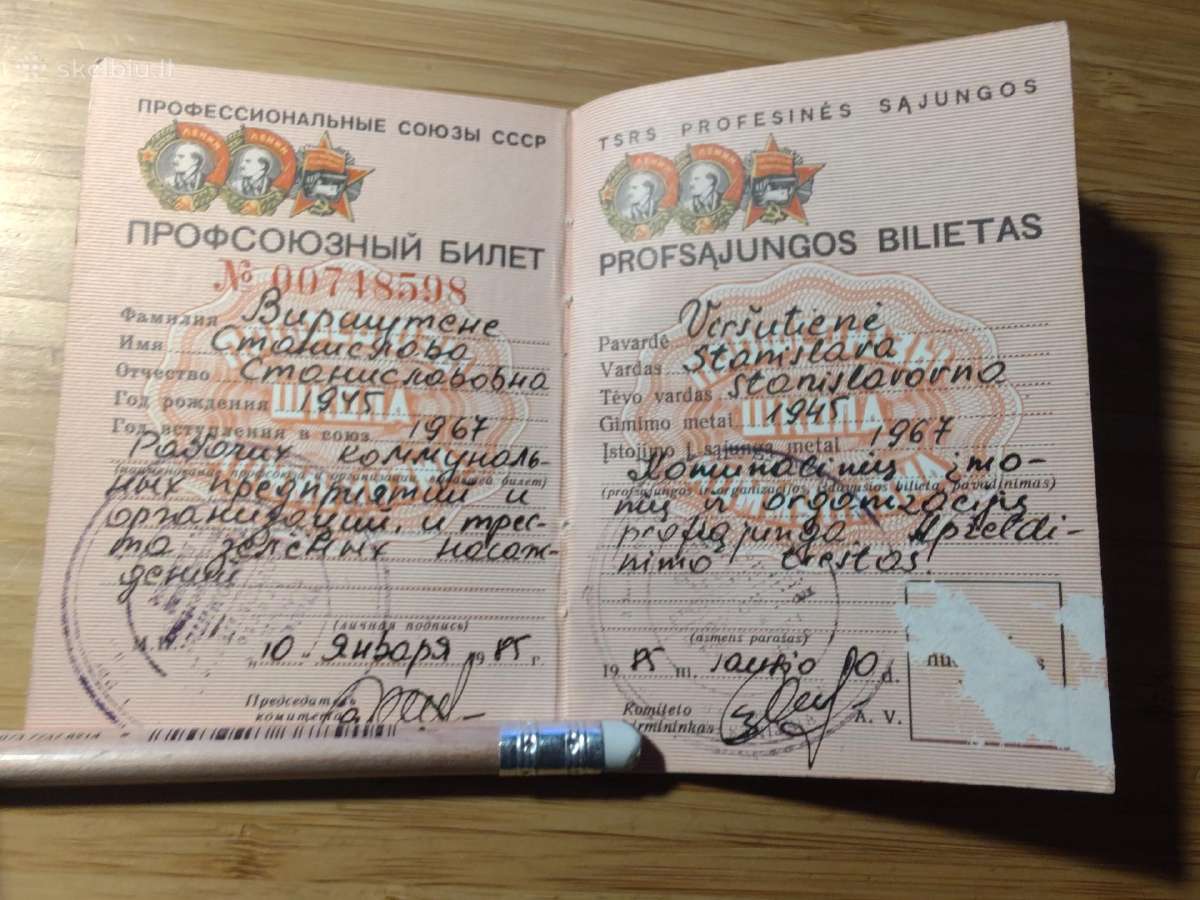 skelbiu.lt
ПРОФЕССИОНАЛЬНЫЕ СОЮЗЫ СССР
ПРОФСОЮЗНЫЙ БИЛЕТ
№ 00748598
Фамилия Виршутене
Имя Станислова
Отчество Станиславовна
Год рождения 1945
Год вступления в союз 1967
Рабочих коммуналь-
ных предприятий и
(наименование профсоюза и организации, выдавшей билет)
организаций. и трес-
та зелёных насаж-
дений
(личная подпись)
М.П.
10 Января 1985 г.
Председатель
комитета
TSRS PROFESINĖS SĄJUNGOS
PROFSĄJUNGOS BILIETAS
Pavardė Viršutienė
Vardas Stanislava
Tėvo vardas Stanislavovna
Gimimo metai 1945
Įstojimo į sąjungą metai 1967
Komunacinių įmo-
(profsąjungos ir organizacijos, išdavusios bilietą, pavadinimas)
nių ir organizacijų
profsąjunga. Apželdi-
nimo trestas.
(asmens parašas)
1985 m. sausio 10 d.
Komiteto
pirmininkas
A. V.